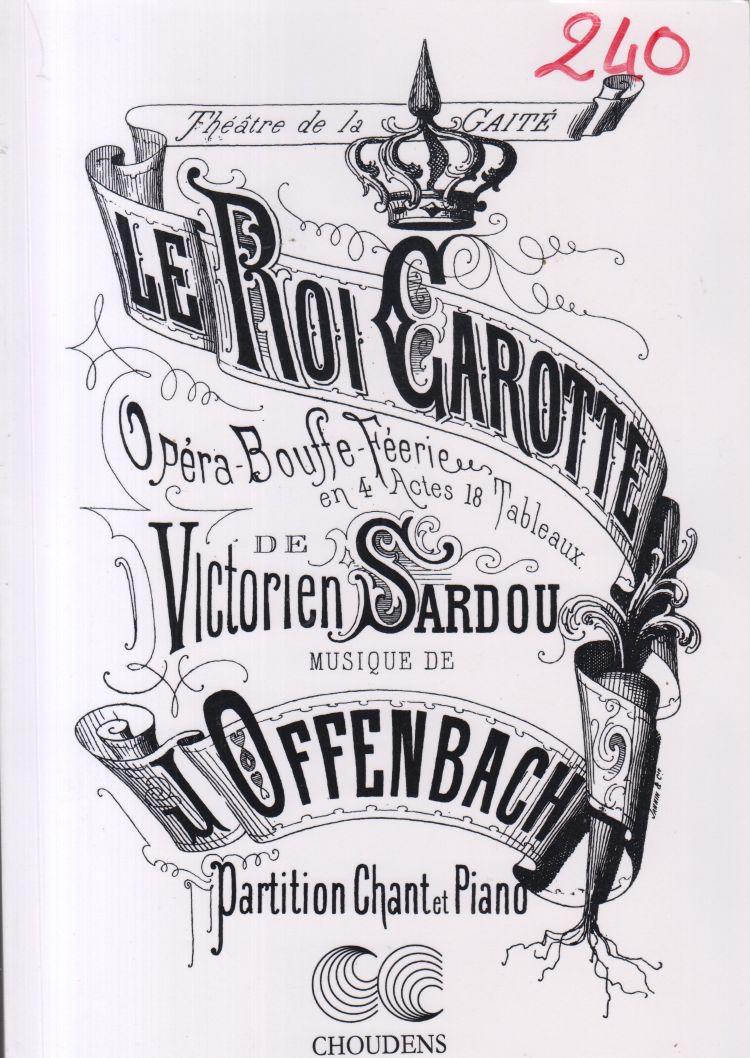 240
Théâtre de la GAITÉ
LE ROI CAROTTE
Opéra-Bouffe-Féerie
en 4 Actes 18 Tableaux.
DE
Victorien SARDOU
MUSIQUE DE
J. OFFENBACH
JANNIN & Cie
Partition Chant et Piano
CHOUDENS